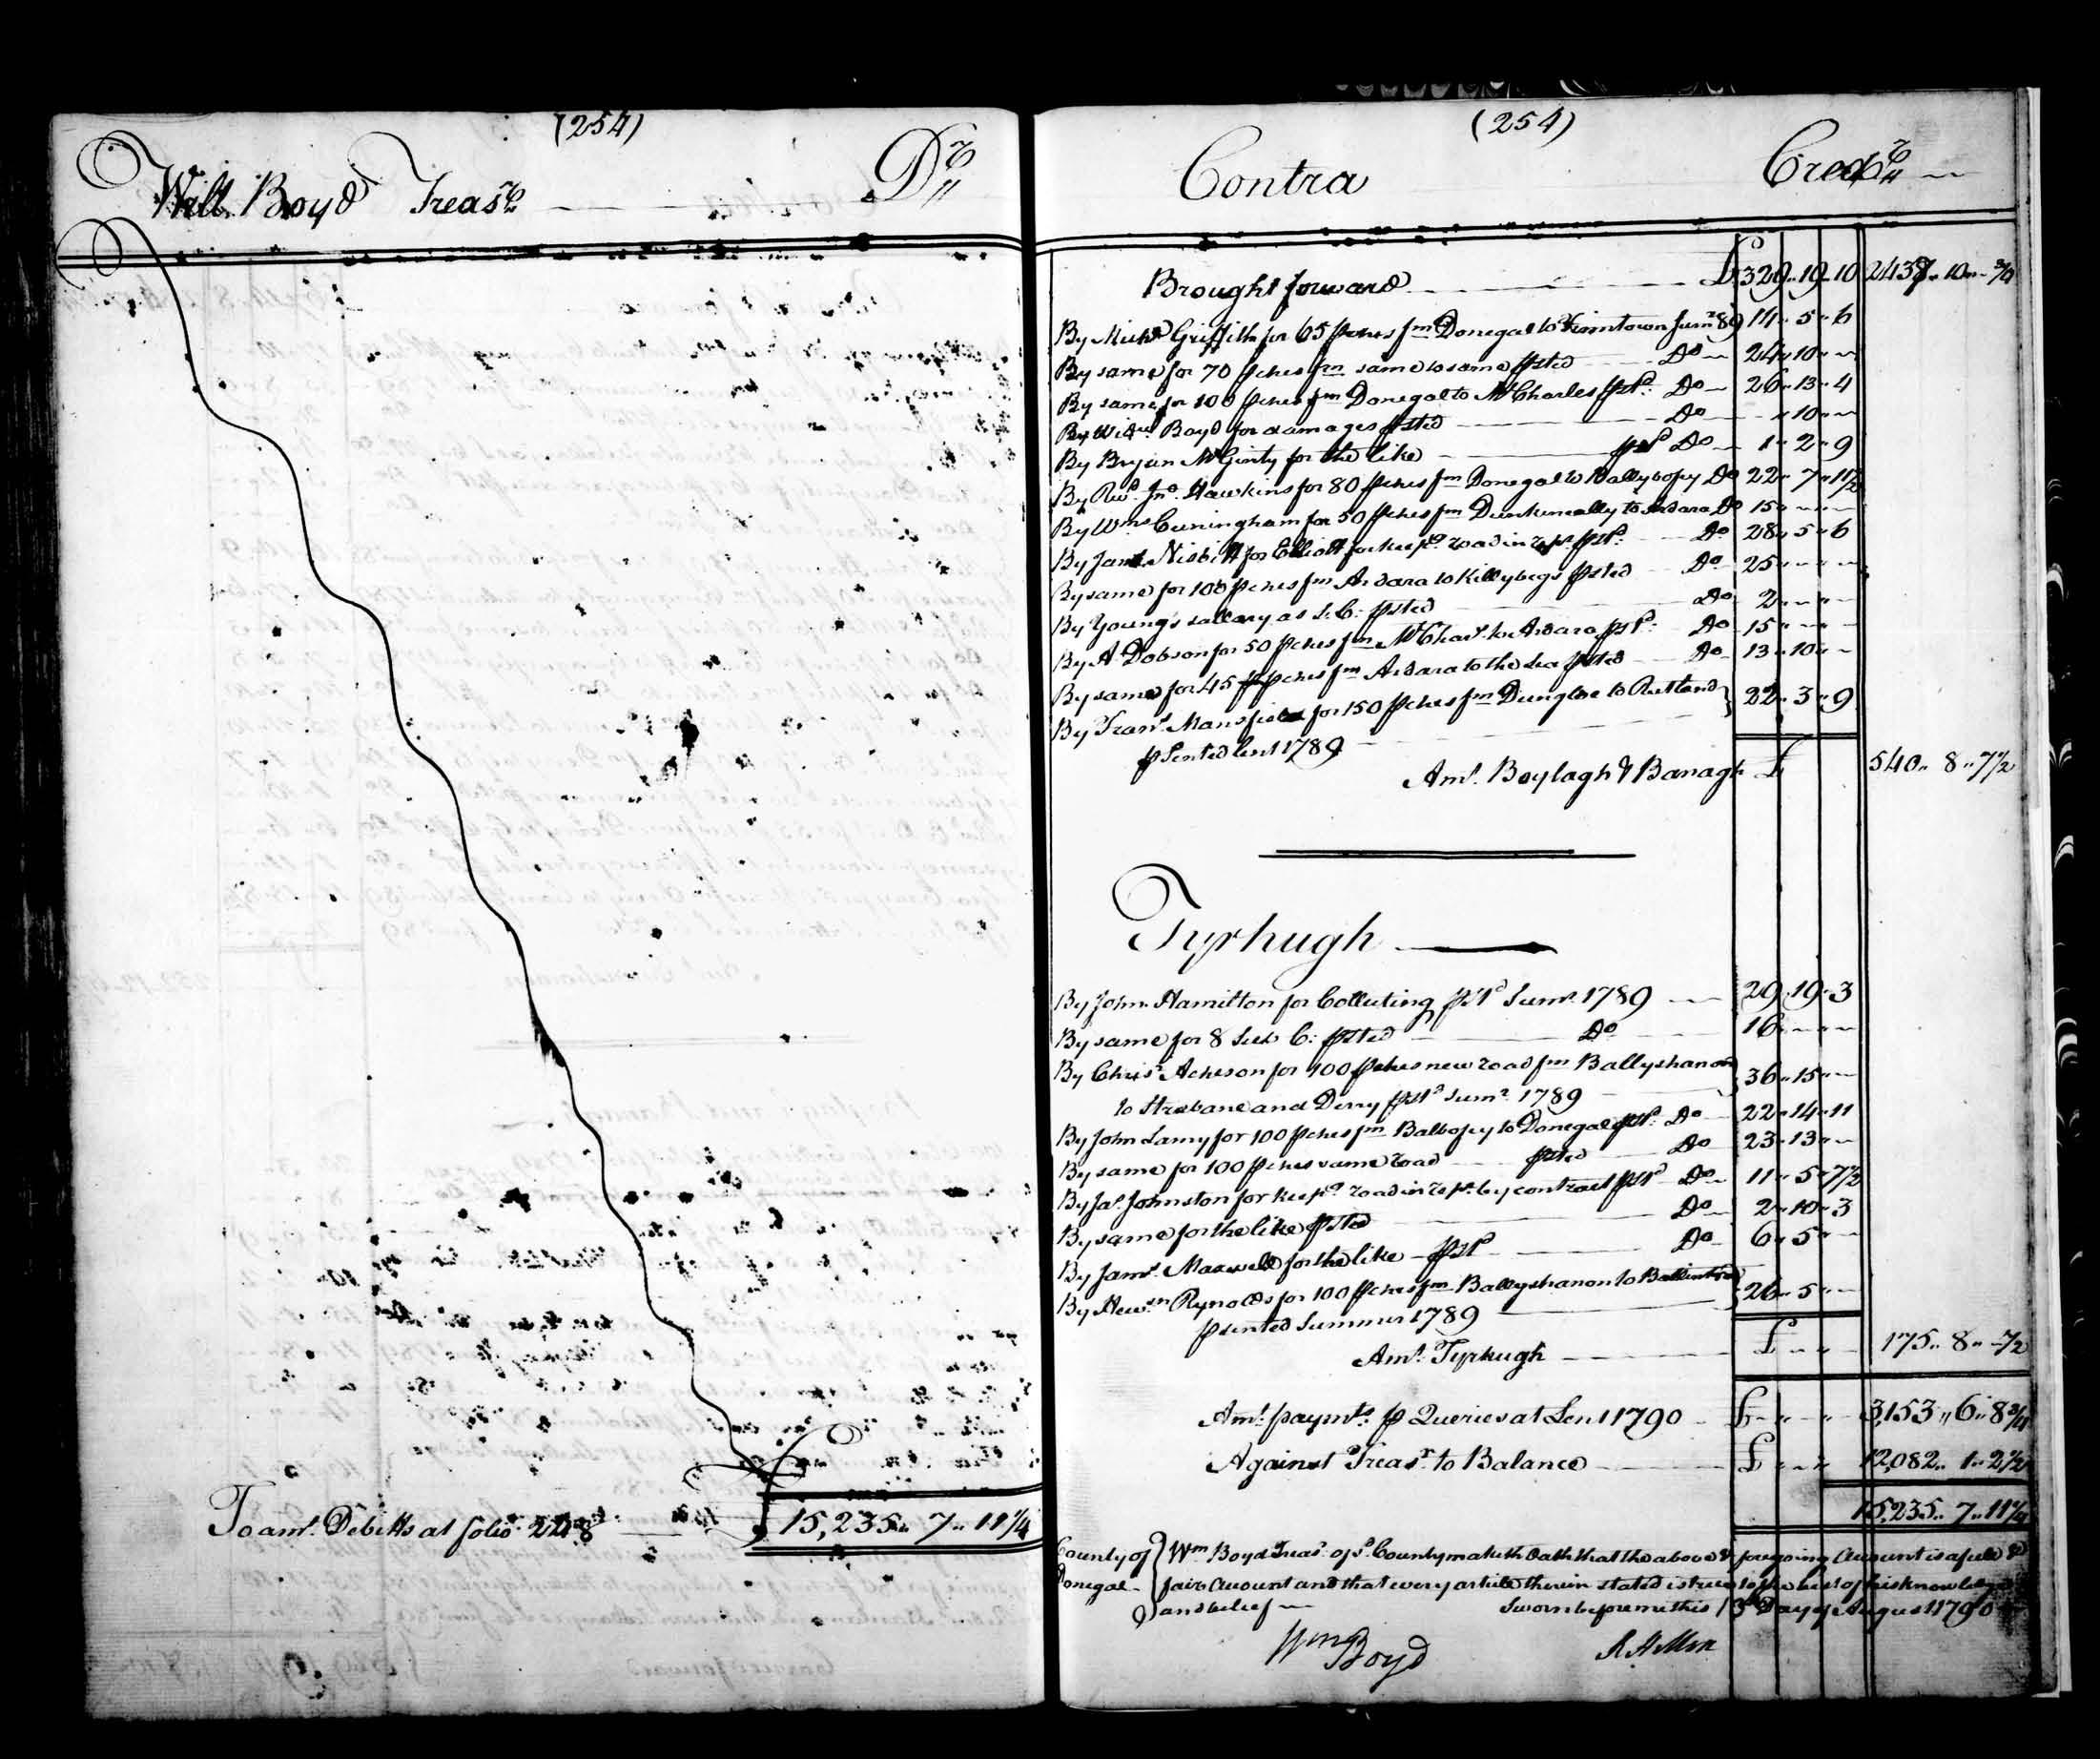 (254)
Will. Boyd Treasr. Dr.
To amt. Debitts at folio 228 15,235,, 7,, 11 1/4
(254)
Contra Credr.
Brought forward £ 329,,19,,10 2437,,10,, 3/4
By Michl. Griffith for 65 pches fm Donegal to Sumr. 89 14,, 5,, 6
By same for 70 pches fm same to same psted Do 24,,10,, ,,
By same for 100 pches fm Donegal to Mt Charles pstd. Do 26,,13,,4
By Widw. Boyd for damages psted Do ,,10,, ,,
By Bryan McGinty for the like pstd Do 1,,2,,9
By Revd. Jno. Hawkins for 80 pches fm Donegal to Ballybofey Do 22,,7,,11 1/2
By Wm. Cuningham for 50 pches fm Dunkineally to Ardara Do 15,, ,, ,,
By Jams. Nisbitt for Elliott for keepg. road in repr. pstd. Do 28,,5,,6
By same for 100 pches fm Ardara to Killybegs psted Do 25,, ,, ,,
By Young's sallary as S:C: psted Do 2,, ,, ,,
By A: Dobson for 50 pches fm Mt Chars. to Ardara pstd. Do 15,, ,, ,,
By same for 45 pches fm Ardara to the Sea psted Do 13,,10,, ,,
By Frans. Mansfield for 150 pches fm Dungloe to Rutland 22,,3,,9
psented Lent 1789
Amt. Boylagh & Banagh £ 540,, 8,,7 1/2
Tyrhugh
By John Hamilton for Collecting pstd Sumr. 1789 29,,19,,3
By same for 8 Sub C: psted Do 16,, ,, ,,
By Chrisr. Acheson for 100 pches new road fm Ballyshanon 36,,15,, ,,
to Strabane and Derry pstd Sumr. 1789
By John Lamy for 100 pches fm Balbofey to Donegal pstd. Do 22,,14,,11
By same for 100 pches same road psted Do 23,,13,, ,,
By Jas. Johnston for keepg. road in repr. by contract pstd Do 11,,5,,7 1/2
By same for the like psted Do 2,,10,,3
By Jams. Maxwell for the like pstd Do 6,,5,, ,,
By Hewsn. Rynolds for 100 pches fm Ballyshanon to Ballintra 26,,5,, ,,
psented Summer 1789
Amt. Tyrhugh £ 175,,8,, 1/2
Amt. paymts. p Queries at Lent 1790 £ 3,153,,6,,8 3/4
Against Treasr. to Balance £ 12,082,,1,,2 1/2
15,235,,7,,11 1/4
County of Wm Boyd Treasr. of sd. County maketh Oath that the above & foregoing Account is a full &
Donegal fair Account and that every article therein stated is true to the best of his knowledge
and belief Sworn before me this 13th Day of August 1790
Wm Boyd